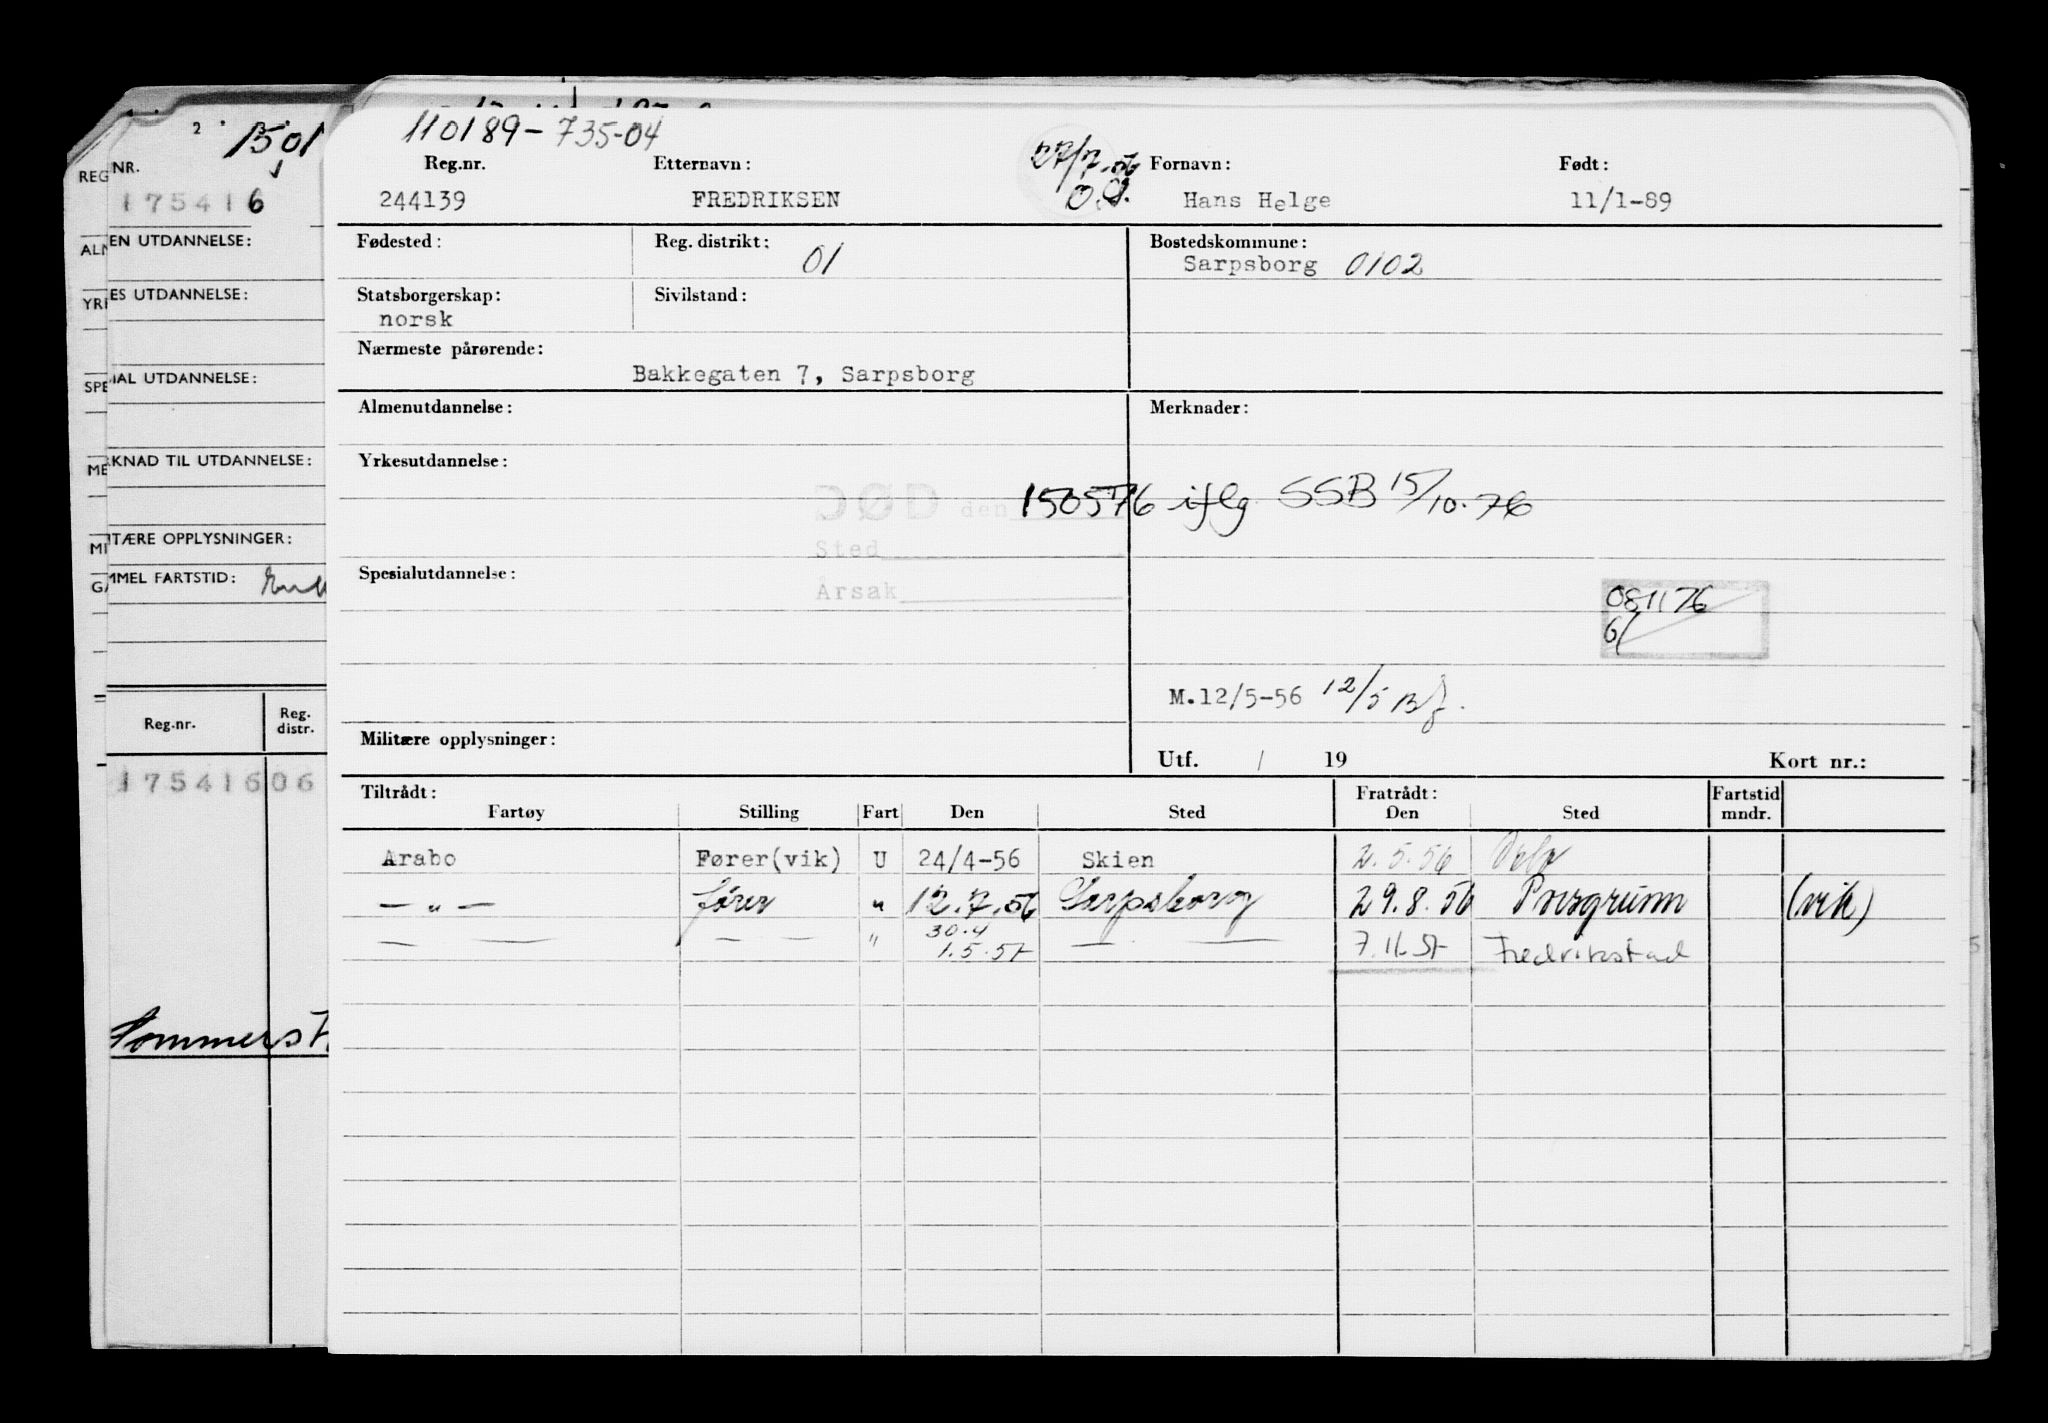 110189-735-04
Reg.nr. Etternavn: 27/7.56 Fornavn: Født:
244139 FREDRIKSEN Ø.J. Hans Helge 11/1-89
Fødested: Reg. distrikt: 01 Bostedskommune:
Sarpsborg 0102
Statsborgerskap: Sivilstand:
norsk
Nærmeste pårørende:
Bakkegaten 7, Sarpsborg
Almenutdannelse: Merknader:
Yrkesutdannelse:
DØD den 150576 iflg SSB 15/10.76
Sted
Spesialutdannelse:
Årsak
081176
6/
M.12/5-56 12/5 Bf.
Militære opplysninger:
Utf. / 19 Kort nr.:
Tiltrådt: Fratrådt: Fartstid
Fartøy Stilling Fart Den Sted Den Sted mndr.
Arabo Fører(vik) U 24/4-56 Skien 2.5.56
— " — fører " 12.7.56 Sarpsborg 29.8.56 Porsgrunn (vik)
— — — — " 30.4 — — 7.11.57 Fredrikstad
1.5.57
2 1501
REG NR.
175416
ALM EN UTDANNELSE:
YRK ES UTDANNELSE:
SPE IAL UTDANNELSE:
ME KNAD TIL UTDANNELSE:
MI TÆRE OPPLYSNINGER:
GA MMEL FARTSTID:
Reg.nr. Reg. distr.
17541606